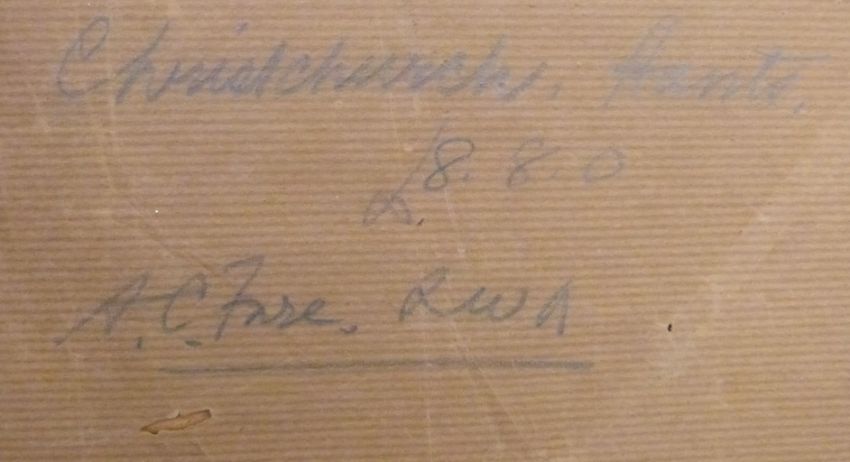 Christchurch, Hants.
£8. 8. 0
A. C. Fare. RWA